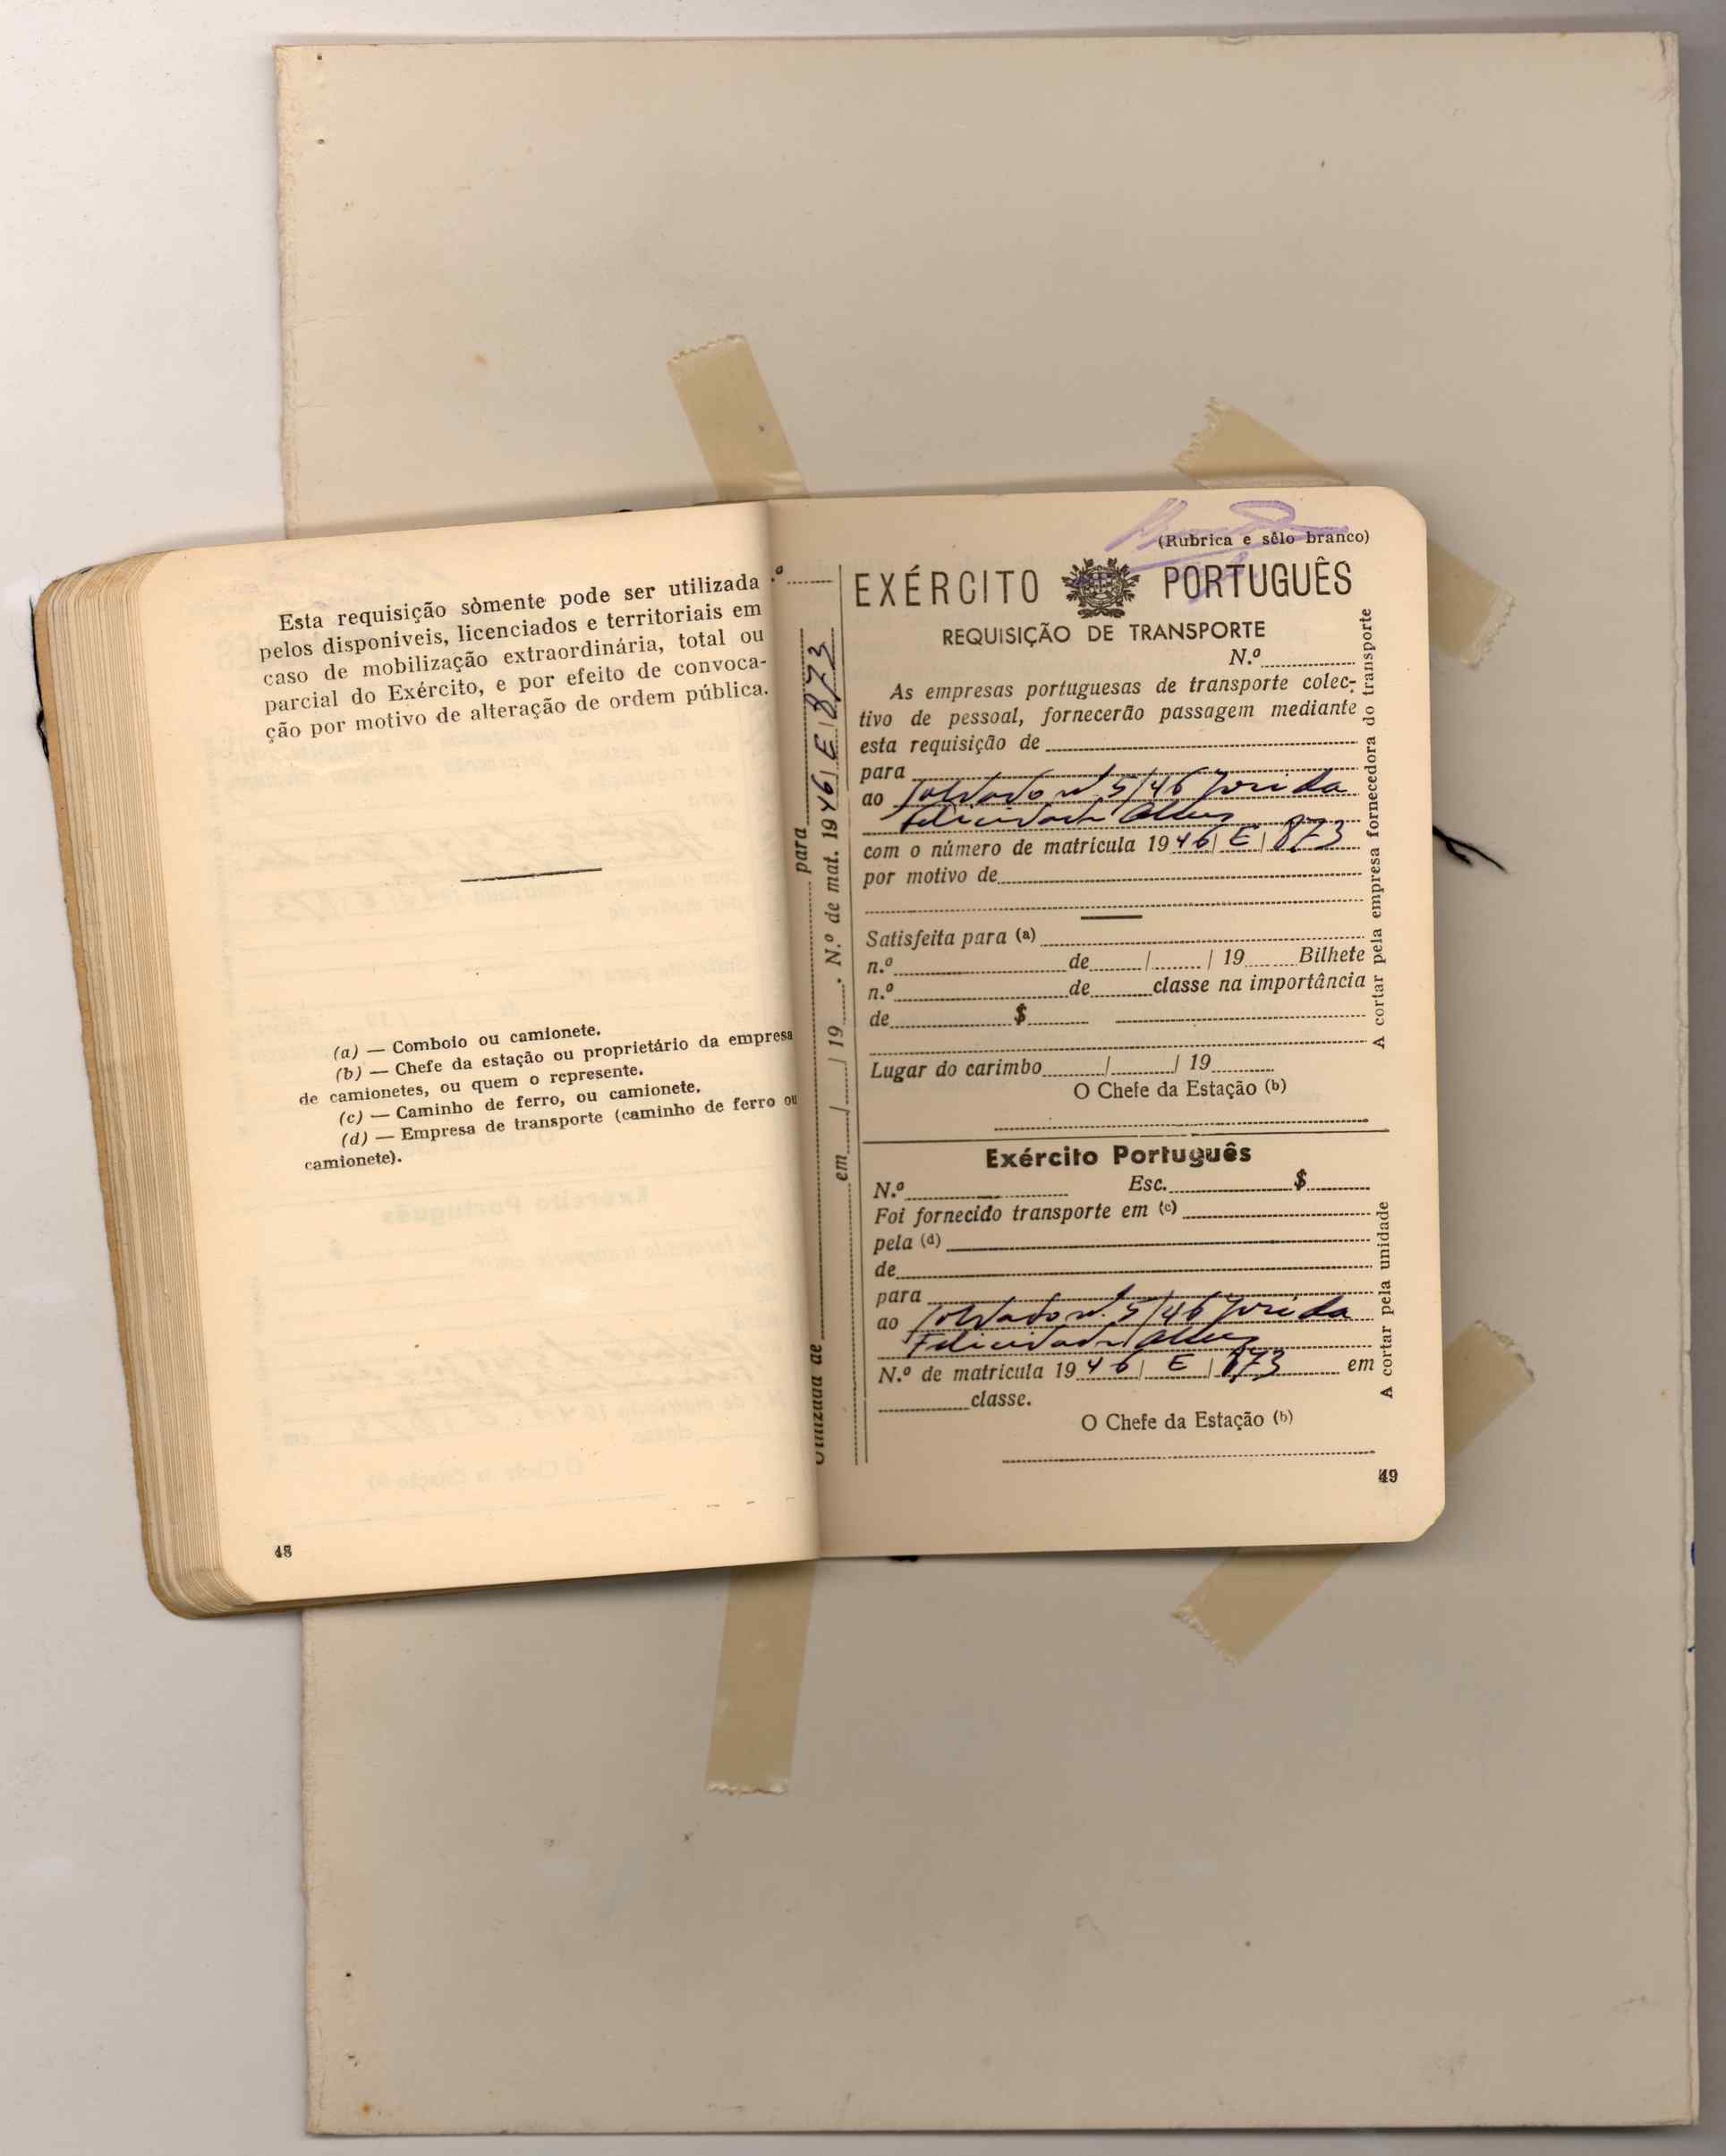 Esta requisição sòmente pode ser utilizada
pelos disponíveis, licenciados e territoriais em
caso de mobilização extraordinária, total ou
parcial do Exército, e por efeito de convoca-
ção por motivo de alteração de ordem pública.
(a) — Comboio ou camionete.
(b) — Chefe da estação ou proprietário da empresa
de camionetes, ou quem o represente.
(c) — Caminho de ferro, ou camionete.
(d) — Empresa de transporte (caminho de ferro ou
camionete).
48
Utilizada de para
em / / 19 . N.º de mat. 1946 / E / 873
(Rubrica e sêlo branco)
EXÉRCITO PORTUGUÊS
REQUISIÇÃO DE TRANSPORTE
N.º
As empresas portuguesas de transporte colec-
tivo de pessoal, fornecerão passagem mediante
esta requisição de
para
ao Soldado n.º 5/46 José da
Felicidade Alves
com o número de matrícula 1946 / E / 873
por motivo de
Satisfeita para (a)
n.º de / / 19 Bilhete
n.º de classe na importância
de $
Lugar do carimbo / / 19
O Chefe da Estação (b)
A cortar pela empresa fornecedora do transporte
Exército Português
N.º Esc. $
Foi fornecido transporte em (c)
pela (d)
de
para
ao Soldado n.º 5/46 José da
Felicidade Alves
N.º de matrícula 1946 / E / 873 em
classe.
O Chefe da Estação (b)
A cortar pela unidade
49